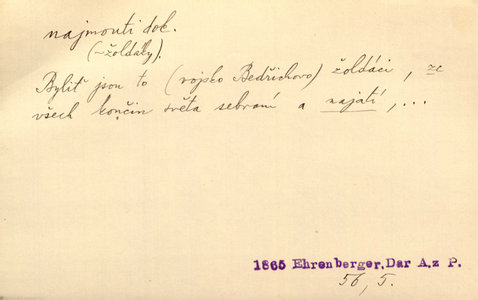 najmouti dok.
(~žoldáky).
Byliť jsou to (vojsko Bedřichovo) žoldáci, ze
všech končin světa sebraní a najatí, ...
1865 Ehrenberger, Dar A. z P.
56, 5.